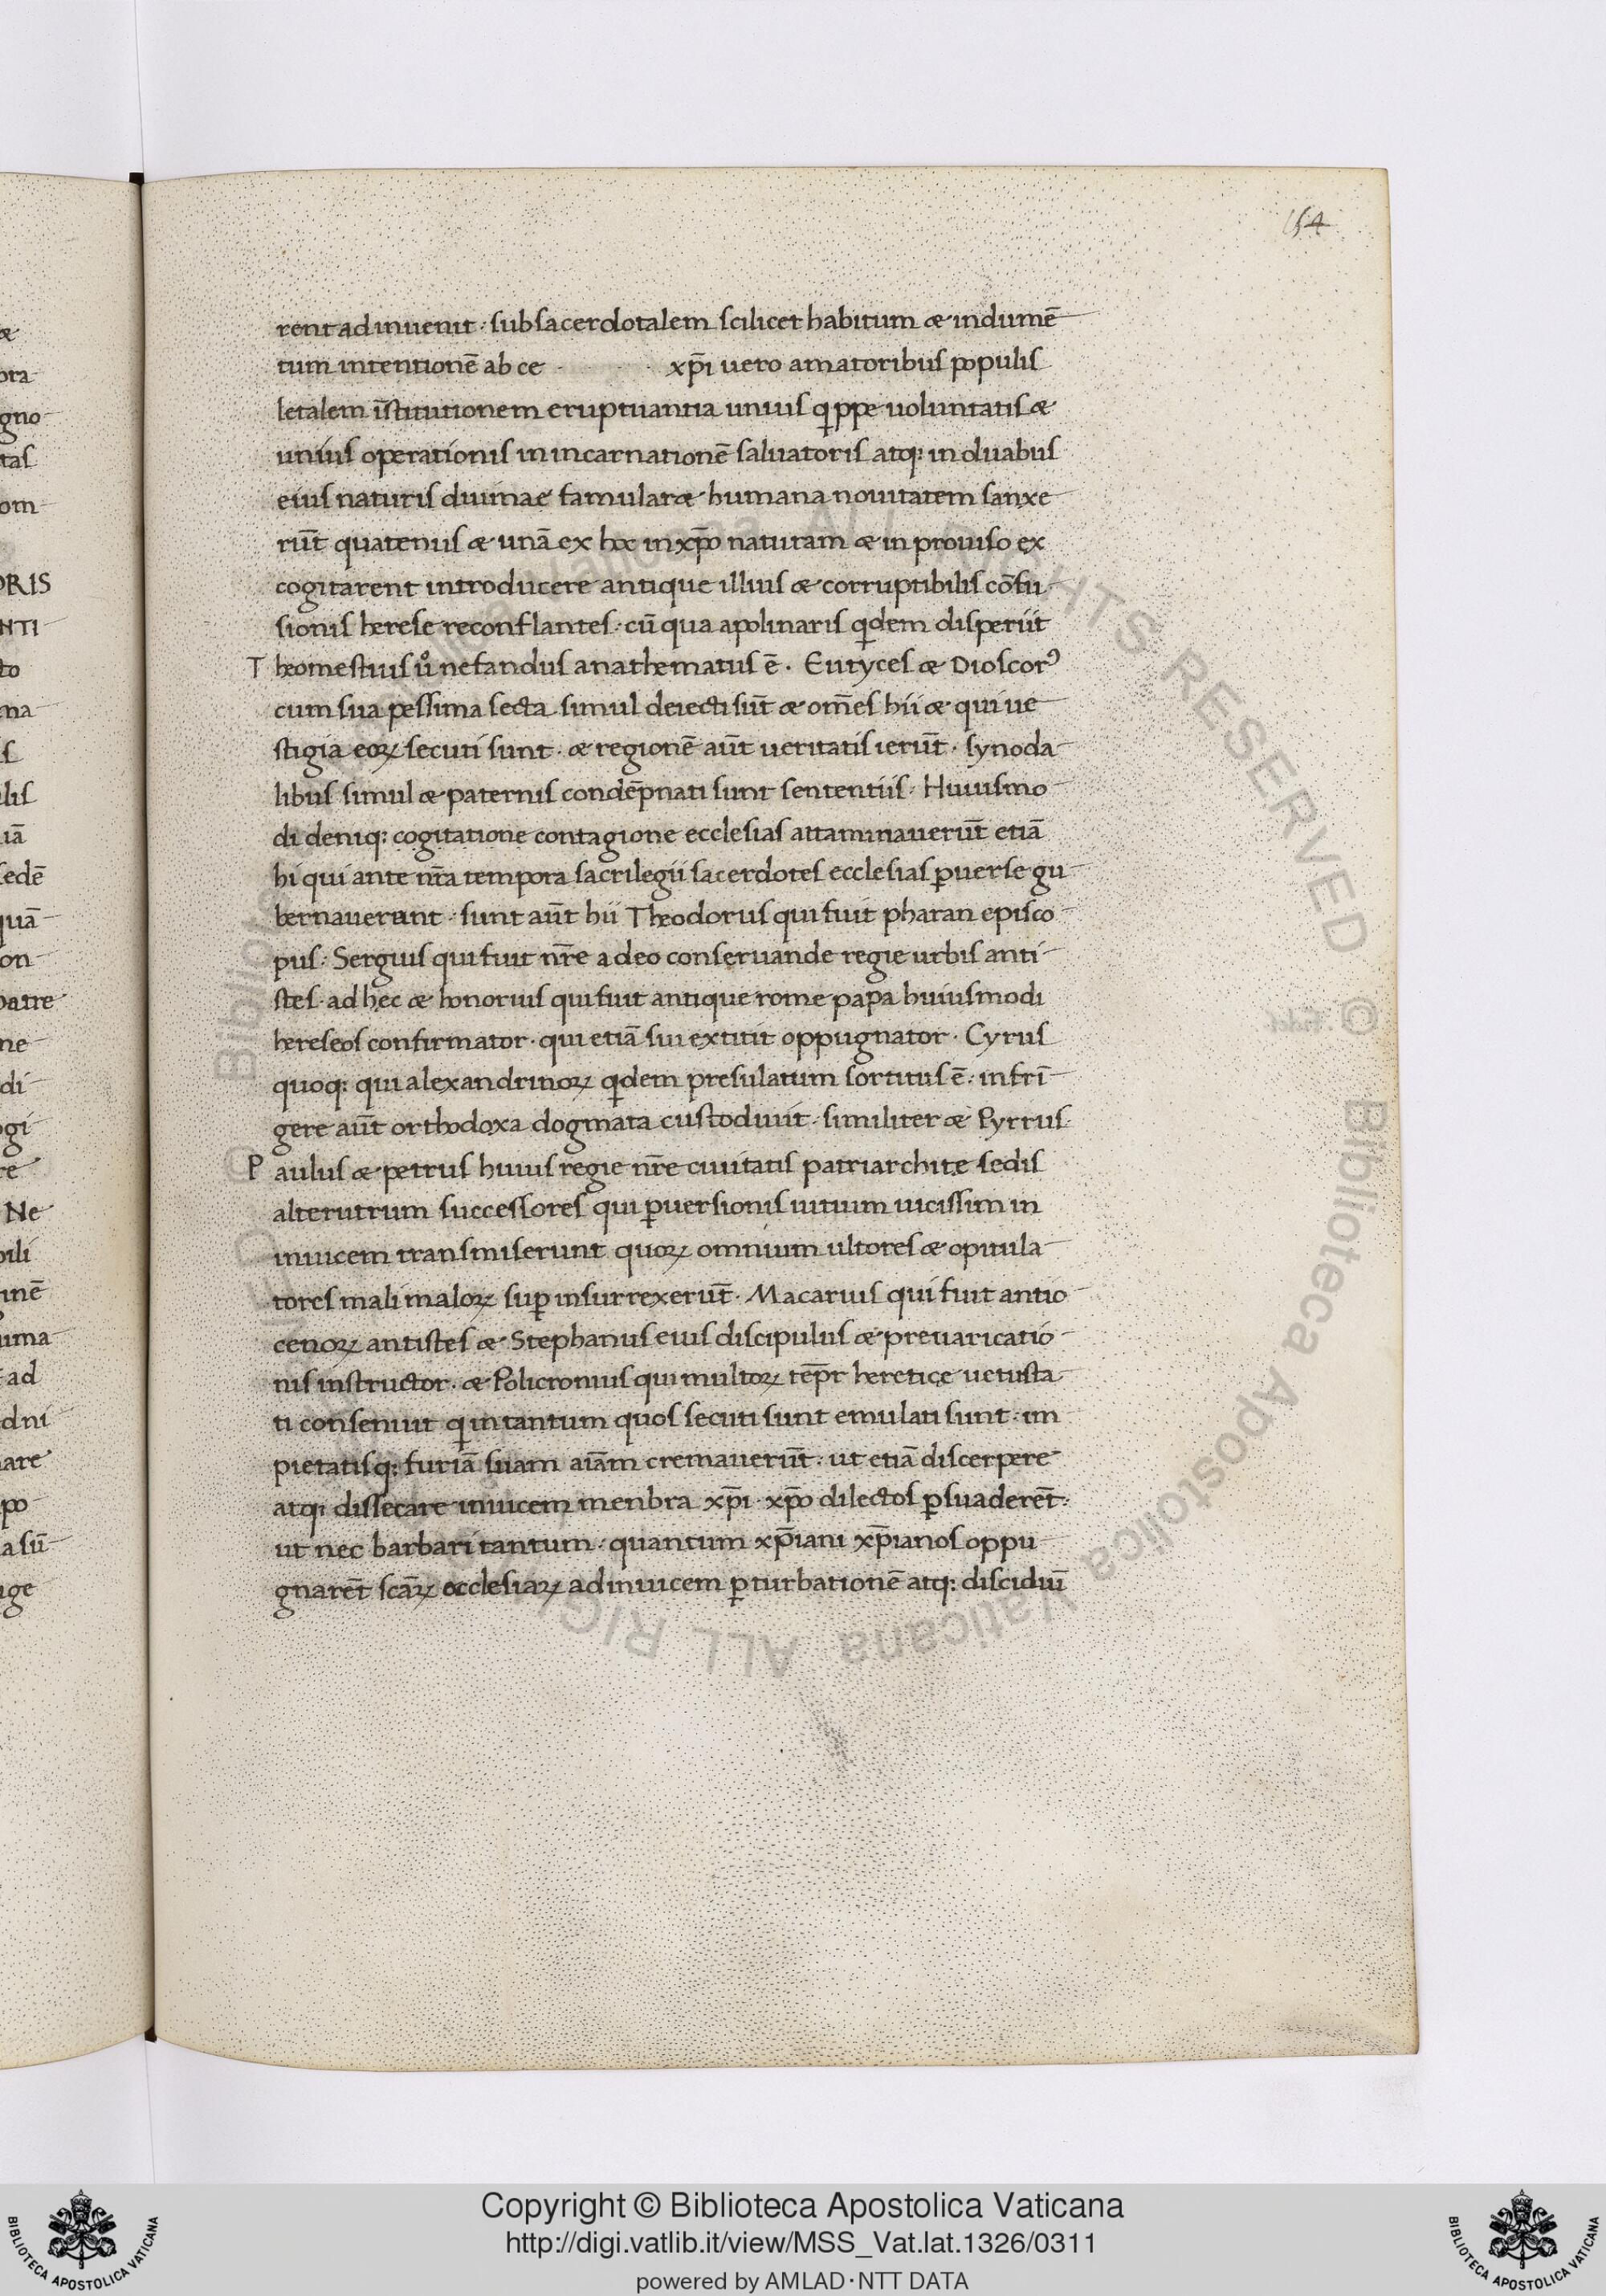 154
rent adinuenit · sub sacerdotalem scilicet habitum & indumē
tum intentionē ab ce xp̄i uero amatoribus populis
letalem īstitutionem eruptuantia unius qippe uoluntatis &
unius operationis in incarnationē saluatoris atq: in duabus
eius naturis diuinae famularæ humana nouitatem sanxe
rūt quatenus & unā ex hoc in xp̄o naturam & in prouiso ex
cogitarent introducere antique illius & corruptibilis cōfu
sionis herese reconflantes · cū qua apolinaris qdem disperiit
Theomestius ů nefandus anathematus ē · Eutyces & Dioscorꝰ
cum sua pessima secta simul deiecti sūt & om̄es hii & qui ue
stigia eoꝝ secuti sunt · & regionē aūt ueritatis ierūt · synoda
libus simul & paternis condēpnati sunt sententiis · Huiusmo
di deniq: cogitatione contagione ecclesias attaminauerūt etiā
hi qui ante nr̄a tempora sacrilegii sacerdotes ecclesias ꝑuerse gu
bernauerunt · sunt aūt hii Theodorus qui fuit pharan episco
pus · Sergius qui fuit nr̄e a deo conseruande regie urbis anti
stes · ad hęc & honorius qui fuit antique rome papa huiusmodi
hereseos confirmator · qui etiā sui extitit oppugnator · Cyrus
quoq: qui alexandrinoꝝ qdem presulatum sortitus ē · infrī
gere aūt orthodoxa dogmata custodiuit · similiter & Pyrrus
Paulus & petrus huius regie nr̄e ciuitatis patriarchite sedis
alterutrum successores qui ꝑuersionis uitium uicissim in
inuicem transmiserunt quoꝝ omnium ultores & opitula
tores mali maloꝝ suꝑ insurrexerūt · Macarius qui fuit antio
cenoꝝ antistes & Stephanus eius discipulus & preuaricatio
nis instructor · & Policronius qui multoꝝ tēpr heretice uetusta
ti consenuit q in tantum quos secuti sunt emulati sunt · im
pietatisq: furiā suam aīam cremauerūt · ut etiā discerpere
atq: dissecare inuicem menbra xp̄i xp̄o dilectos ꝑsuaderēt:
ut nec barbari tantum · quantum xp̄iani xp̄ianos oppu
gnarēt scāꝝ ecclesiaꝝ adinuicem ꝑturbationē atq: discidiū
Copyright © Biblioteca Apostolica Vaticana
http://digi.vatlib.it/view/MSS_Vat.lat.1326/0311
powered by AMLAD·NTT DATA